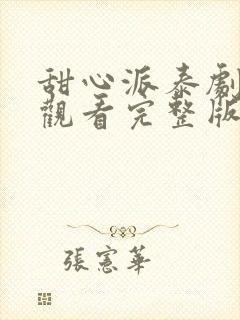 甜心派泰劇
觀看完整版
張憲華